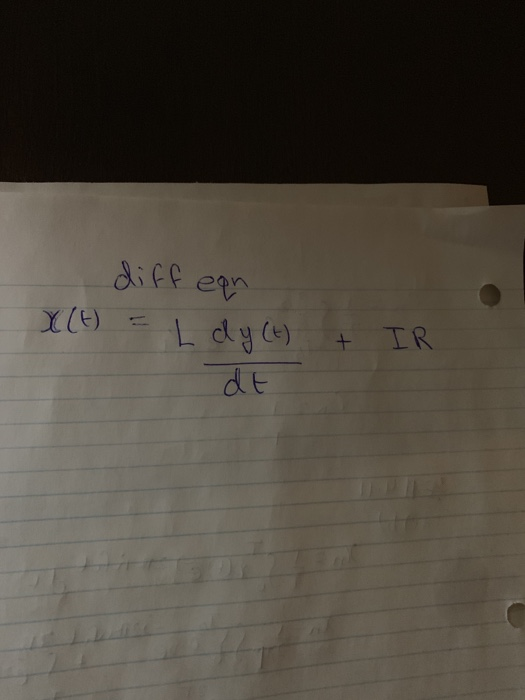 diff eqn
x(t) = L dy(t)/dt + IR